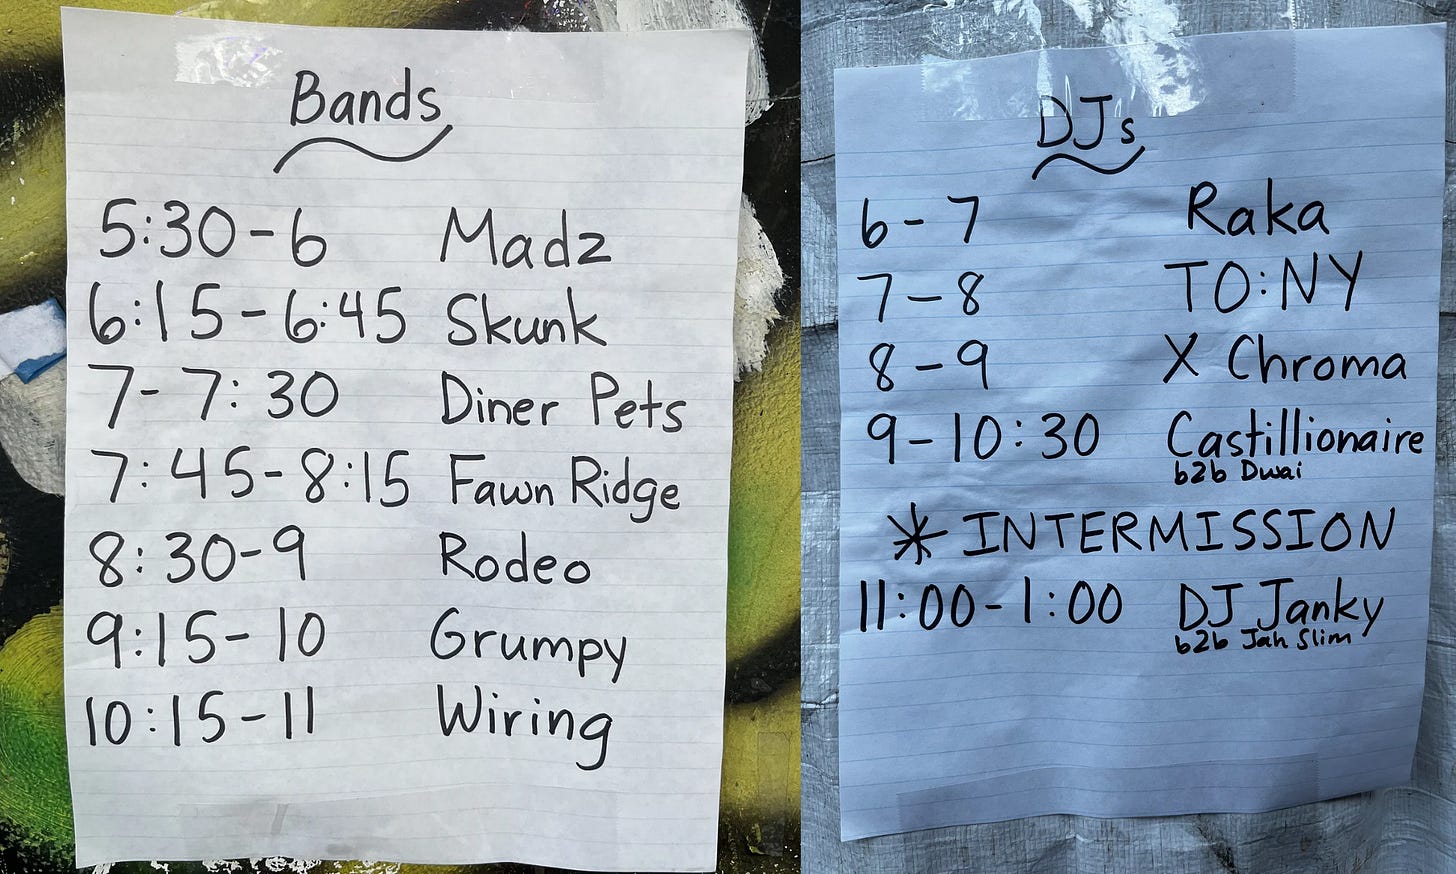 Bands
5:30-6 Madz
6:15-6:45 Skunk
7-7:30 Diner Pets
7:45-8:15 Fawn Ridge
8:30-9 Rodeo
9:15-10 Grumpy
10:15-11 Wiring
DJs
6-7 Raka
7-8 TO:NY
8-9 X Chroma
9-10:30 Castillionaire
b2b Dwai
* INTERMISSION
11:00-1:00 DJ Janky
b2b Jah Slim